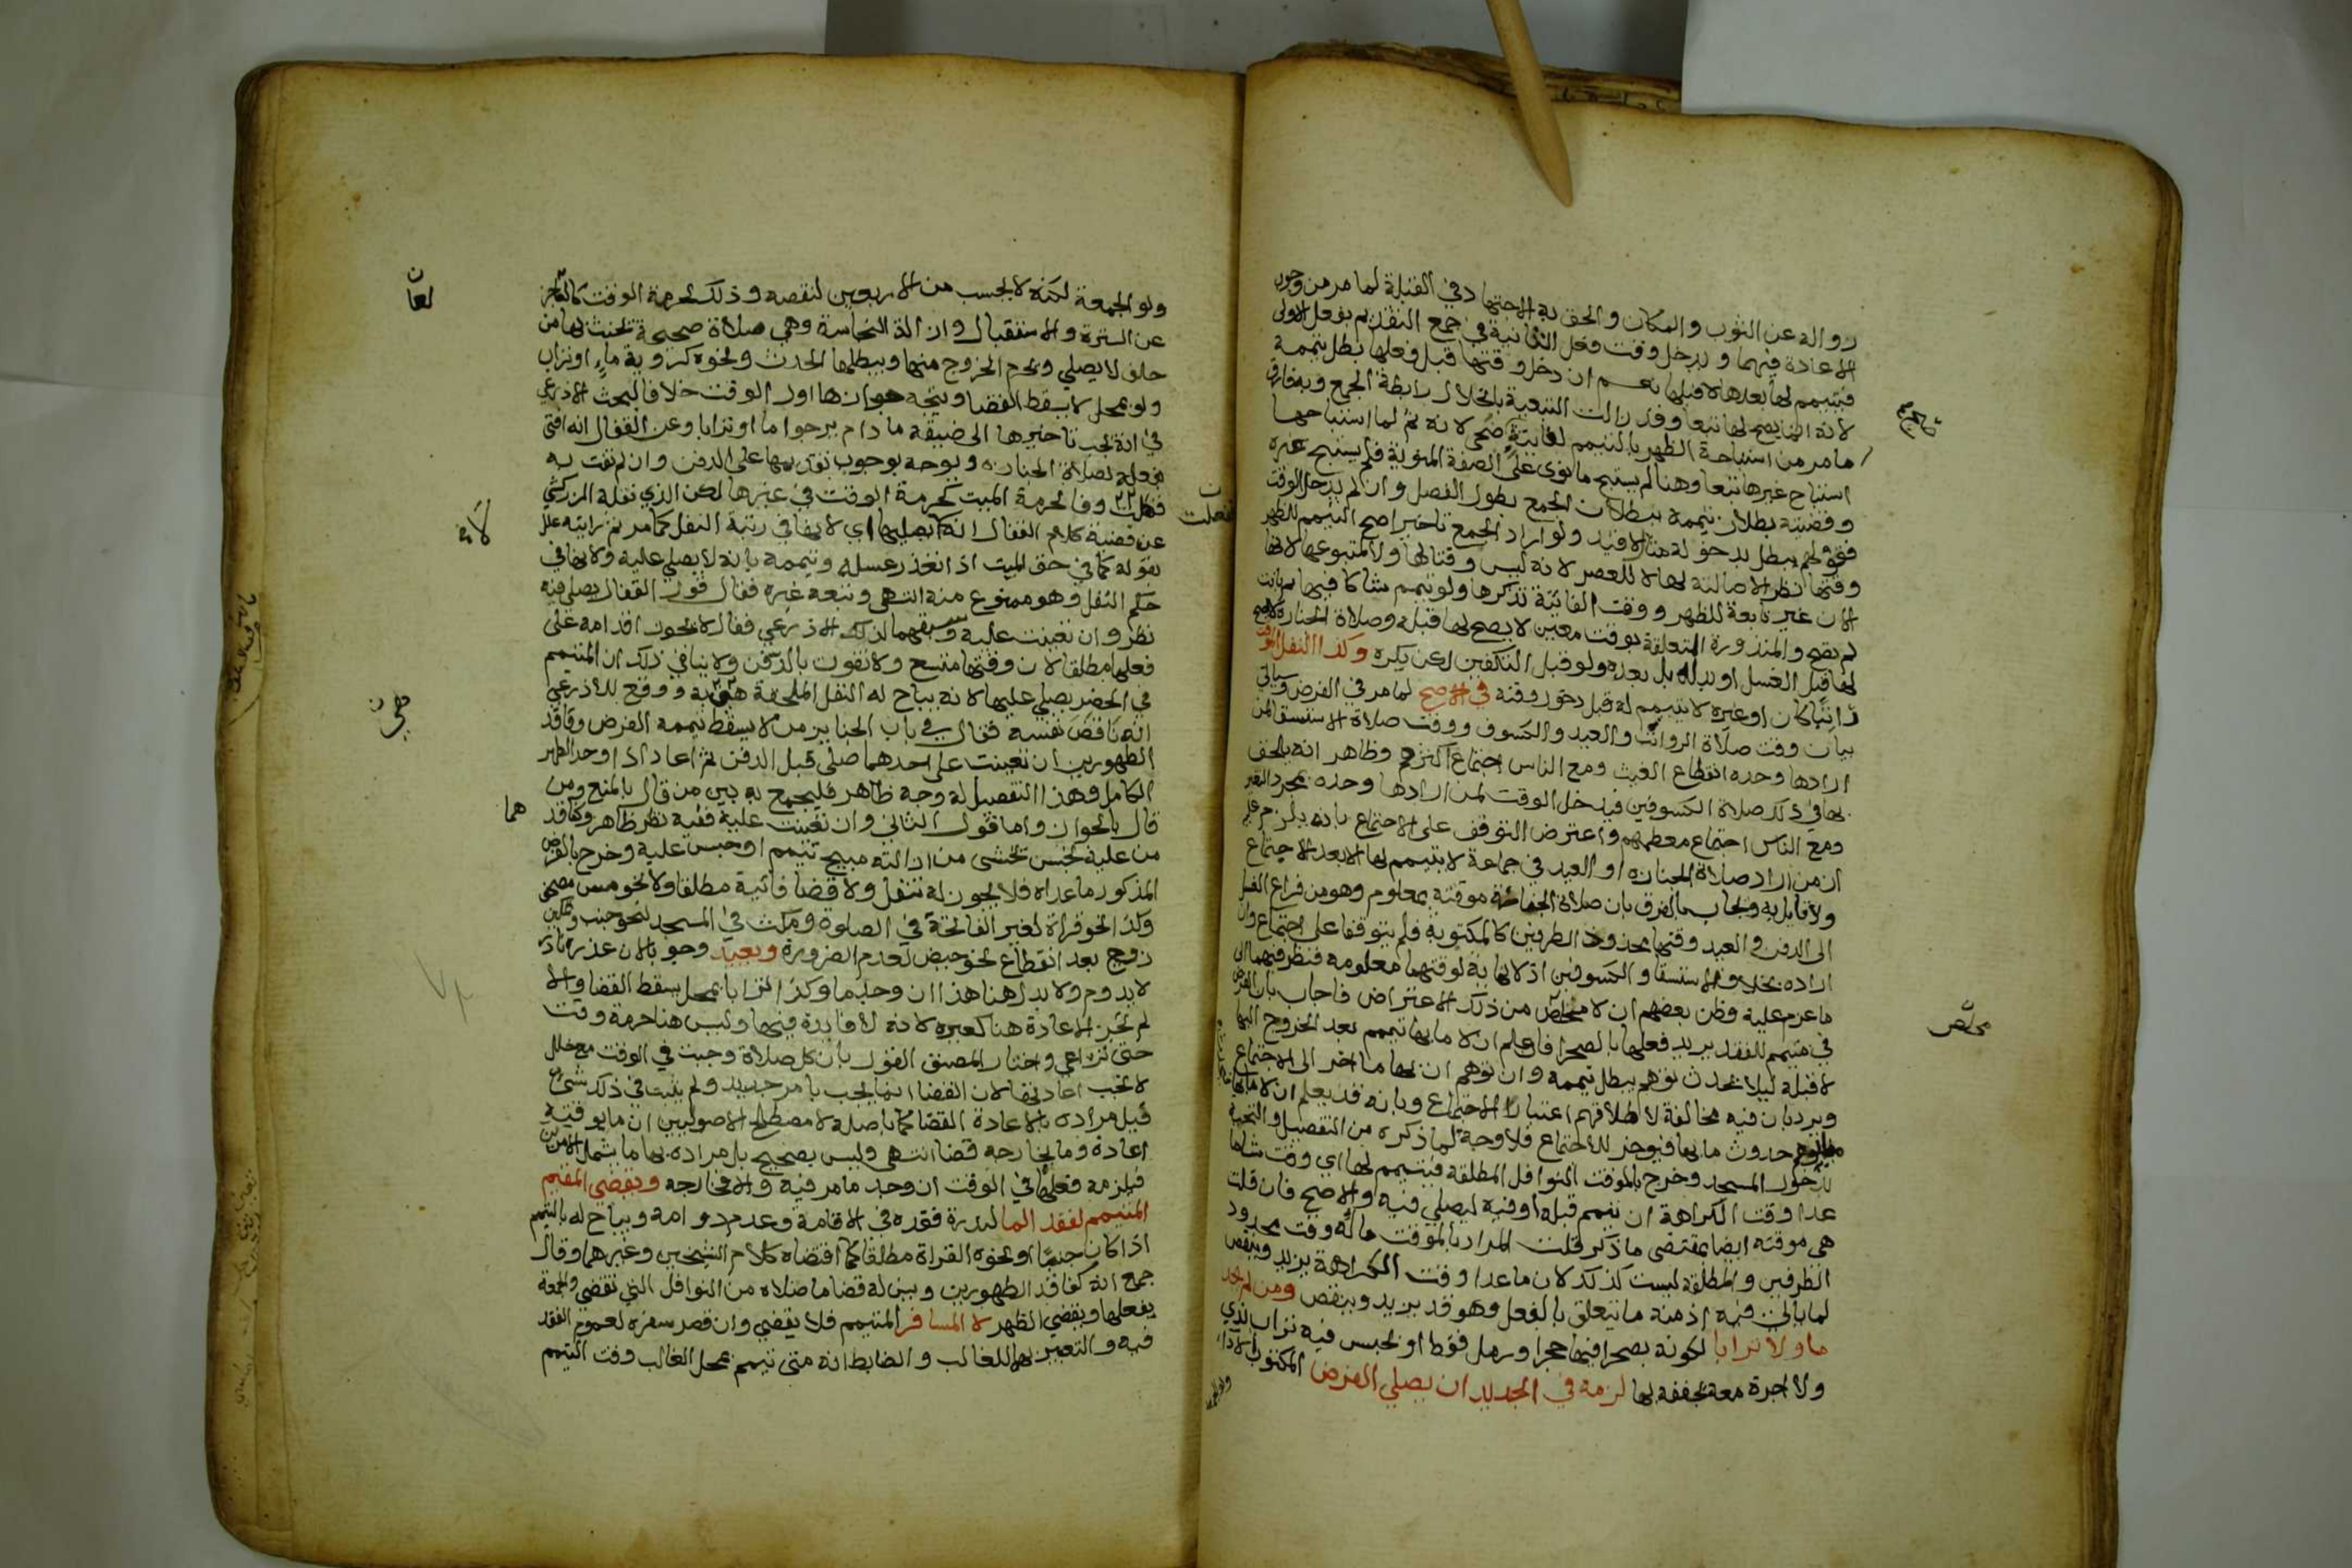 زواله عن الثوب والمكان والحق به الاجتهاد في القبلة لما مر من وجوب
الاعادة فيهما ويدخل وقت فعل الثانية في جمع التقديم بفعل الاولى
فيتيمم لها بعدها لا قبلها نعم ان دخل وقتها قبل فعلها بطل تيممه
لانه انما يصح لها تبعا وقد زالت التبعية بانحلال رابطة الجمع وبه فارق
ما مر من استباحة الظهر بالتيمم لفائتة ضحى لانه ثم لما استباحها
استباح غيرها تبعا وهنا لم يستبح ما نوى على الصفة المنوية فلم يستبح غيره
وقضيته بطلان تيممه ببطلان الجمع بطول الفصل وان لم يدخل الوقت
فقولهم يبطل بدخوله مثال لا قيد ولو اراد الجمع تاخيرا صح التيمم للظهر
وقتها نظرا لاصالته لها لا للعصر لانه ليس وقتا لها ولا لمتبوعها لانها
الان غير تابعة للظهر ووقت الفائتة تذكرها ولو تيمم شاكا فيها ثم بانت
لم يصح والمنذورة المتعلقة بوقت معين لا يصح لها قبله وصلاة الجنازة
لها قبل الغسل او بدله بل بعده ولو قبل التكفين لكن يكره وكذا النفل الموقت
راتبا كان او غيره لا يتيمم له قبل دخول وقته في الاصح لما مر في الفرض وسياتي
بيان وقت صلاة الرواتب والعيد والكسوف ووقت صلاة الاستسقا لمن
ارادها وحده انقطاع الغيث ومع الناس اجتماع اكثرهم وظاهر انه يلحق
بها في ذلك صلاة الكسوفين فيدخل الوقت لمن ارادها وحده بمجرد التغير
ومع الناس اجتماع معظمهم واعترض التوقف على الاجتماع بانه يلزم عليه
ان من اراد صلاة الجنازة او العيد في جماعة لا يتيمم لها الا بعد الاجتماع
ولا قايل به ويجاب بالفرق بان صلاة الجنازة موقتة بمعلوم وهو من فراغ الغسل
الى الدفن والعيد وقتها محدود الطرفين كالمكتوبة فلم يتوقفا على اجتماع وان
اراده بخلاف الاستسقا والكسوفين اذ لا نهاية لوقتهما معلومة فنظر فيهما الى
ما عزم عليه وظن بعضهم ان لا مخلص من ذلك الاعتراض فاجاب بان الفرض
في متيمم للفقد يريد فعلها بالصحرا فاعلم ان لا ما بها تيمم بعد الخروج اليها
لا قبله ليلا يحدث توهم يبطل تيممه وان توهم ان بها ما اخر الى الاجتماع
ويرد بان فيه مخالفة لاطلاقهم اعتبار الاجتماع وبانه قد يعلم ان لا ما بها
حدوث ما بها فيوخر للاجتماع فلا وجه لما ذكره من التفصيل والتحية
بدخول المسجد وخرج بالموقت النوافل المطلقة فيتيمم لها اي وقت شاها
عدا وقت الكراهة ان تيمم قبله او فيه ليصلي فيه والا صح فان قلت
هي موقتة ايضا بمقتضى ما ذكر قلت المراد بالموقت ما له وقت محدود
الطرفين والمطلقة ليست كذلك لان ما عدا وقت الكراهة يزيد وينقص
لما ياتي فيه اذ منه ما يتعلق بالفعل وهو قد يزيد وينقص ومن لم يجد
ما ولا ترابا لكونه بصحرا فيها حجر او رمل فقط او بحبس فيه تراب ندي
ولا اجرة معه تجففه بها لزمه في الجديد ان يصلي الفرض المكتوب الادا
مخلص
ولو الجمعة
ولو الجمعة لكنه لا يحسب من الاربعين لنقصه وذلك لحرمة الوقت كالعاجز
عن السترة والاستقبال وازالة النجاسة وهي صلاة صحيحة يحنث بها من
حلف لا يصلي ويحرم الخروج منها ويبطلها الحدث ونحوه كرؤية ماء او تراب
ولو بمحل لا يسقط القضا ويتجه جوازها اول الوقت خلافا لبحث الاذرعي
في انه يجب تاخيرها الى ضيقه ما دام يرجوا ما او ترابا وعن القفال انه افتى
بفعله لصلاة الجنازة ويوجه بوجوب تقديمها على الدفن وان لم تفت به
فكانت وفا لحرمة الميت كحرمة الوقت في غيرها لكن الذي نقله الزركشي
عن قضية كلام القفال انه لا يصليها اي لانها في رتبة النفل كما مر ثم رايته علل
بقوله كما في حق الميت اذا تعذر غسله وتيممه بانه لا يصلى عليه ولانها في
حكم النفل وهو ممنوع منه انتهى وتبعه غيره فقال قول القفال يصلي فيه
نظر وان تعينت عليه وسبقهما لذلك الاذرعي فقال لا يجوز اقدامه على
فعلها مطلقا لان وقتها متسع ولا تفوت بالدفن ولا ينافي ذلك ان المتيمم
في الحضر يصلي عليها لانه يباح له النفل الملحقة هي به ووقع للاذرعي
انه ناقض نفسه فقال في باب الجنايز من لا يسقط تيممه الفرض وفاقد
الطهورين ان تعينت على احدهما صلى قبل الدفن ثم اعاد اذا وجد الطهر
الكامل وهذا التفصيل له وجه ظاهر فليجمع به بين من قال بالمنع ومن
قال بالجواز واما قول الثاني وان تعينت عليه ففيه نظر ظاهر وكفاقد
من عليه نجس يخشى من ازالته مبيح تيمم او حبس عليه وخرج بالفرض
المذكور ما عداه فلا يجوز له تنفل ولا قضا فائتة مطلقا ولا نحو مس مصحف
وكذا نحو قراة لغير الفاتحة في الصلوة ومكث في المسجد لنحو جنب وتمكين
زوج بعد انقطاع نحو حيض لعدم الضرورة ويعيد وجوبا لان عذره نادر
لا يدوم ولا بدل هنا هذا ان وجد ما وكذا ترابا بمحل يسقط القضا والا
لم تجز الاعادة هنا كغيره لانه لا فايدة فيها وليس هنا حرمة وقت
حتى تراعى واختار المصنف القول بان كل صلاة وجبت في الوقت مع خلل
لا تجب اعادتها لان القضا انما يجب بامر جديد ولم يثبت في ذلك شئ
قيل مراده بالاعادة القضا كما باصله لا مصطلح الاصوليين ان ما بوقته
اعادة وما بخارجه قضا انتهى وليس بصحيح بل مراده بها ما يشمل الامرين
فيلزمه فعلها في الوقت ان وجد ما مر فيه والا فخارجه ويقضي المقيم
المتيمم لفقد الما لندرة فقده في الاقامة وعدم دوامه ويباح له بالتيمم
اذا كان جنبا او نحوه القراة مطلقا كما اقتضاه كلام الشيخين وغيرهما وقال
جمع انه كفاقد الطهورين ويبين له قضا ما صلاه من النوافل التي تقضى والجمعة
يفعلها ويقضي الظهر لا المسافر المتيمم فلا يقضي وان قصر سفره لعموم الفقد
فيه والتعبير بهما للغالب والضابط انه متى تيمم بمحل الغالب وقت التيمم
لانه
هي
هما